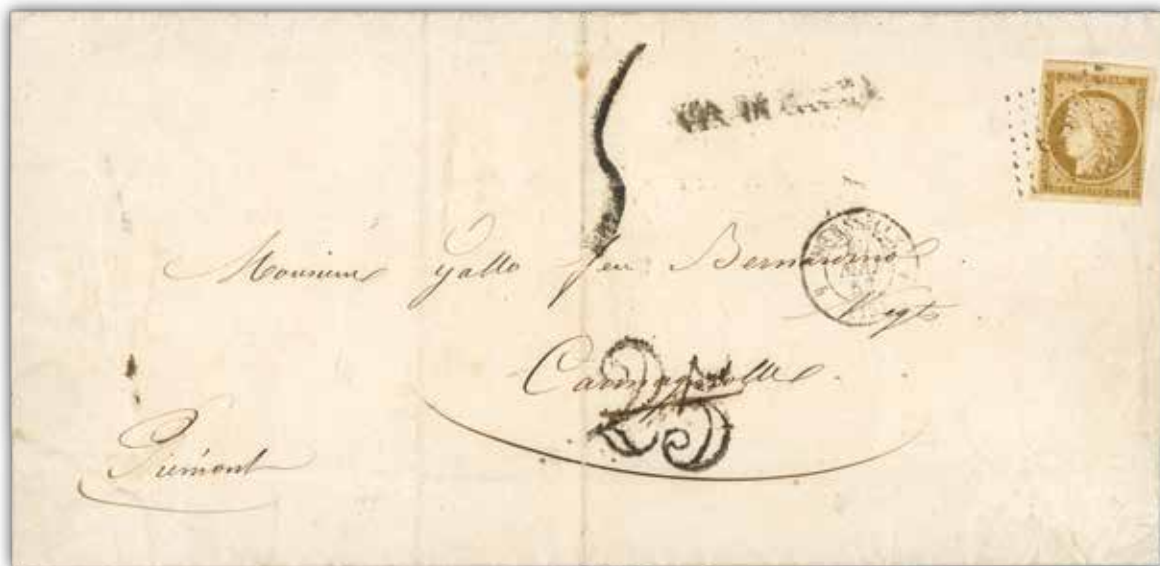 VIA DI
Monsieur Gallo feu Bernardino
Negt
Carmagnolle
25
Piémont